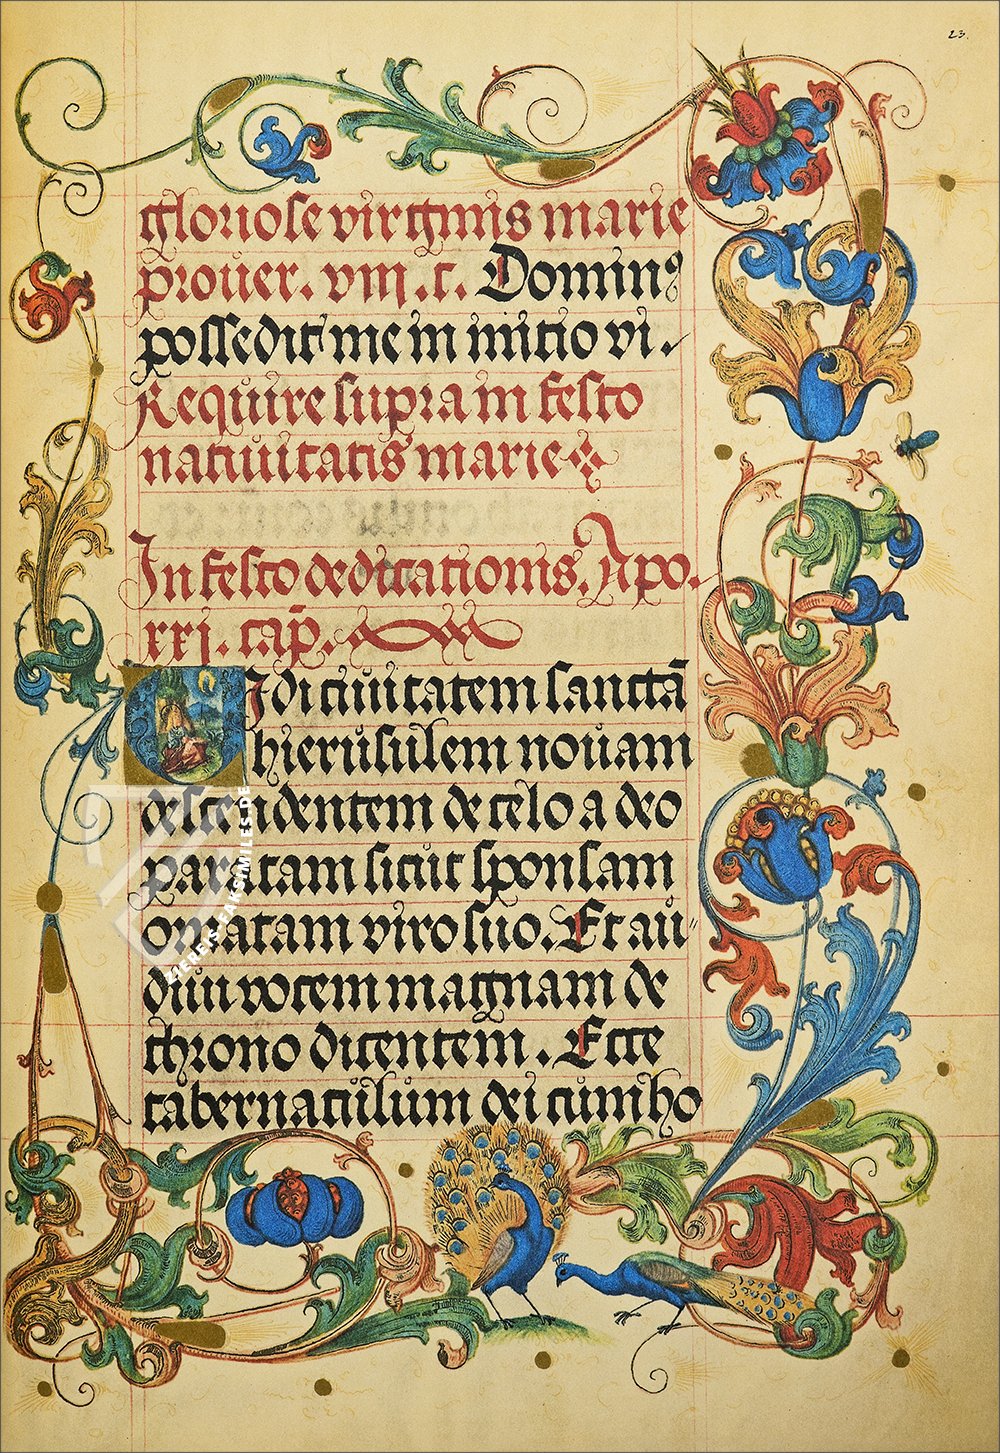 23.
gloriose virginis marie
prouer. viij. c. Dominꝰ
possedit me in initio vi.
Require supra in festo
natiuitatis marie
In festo dedicationis. Apo.
xxj. cap̄.
Vidi ciuitatem sanctā
hierusulem nouam
descendentem de celo a deo
paratam sicut sponsam
ornatam viro suo. Et au
diui vocem magnam de
throno dicentem. Ecce
tabernaculum dei cum ho
ZIEREIS-FAKSIMILES.DE